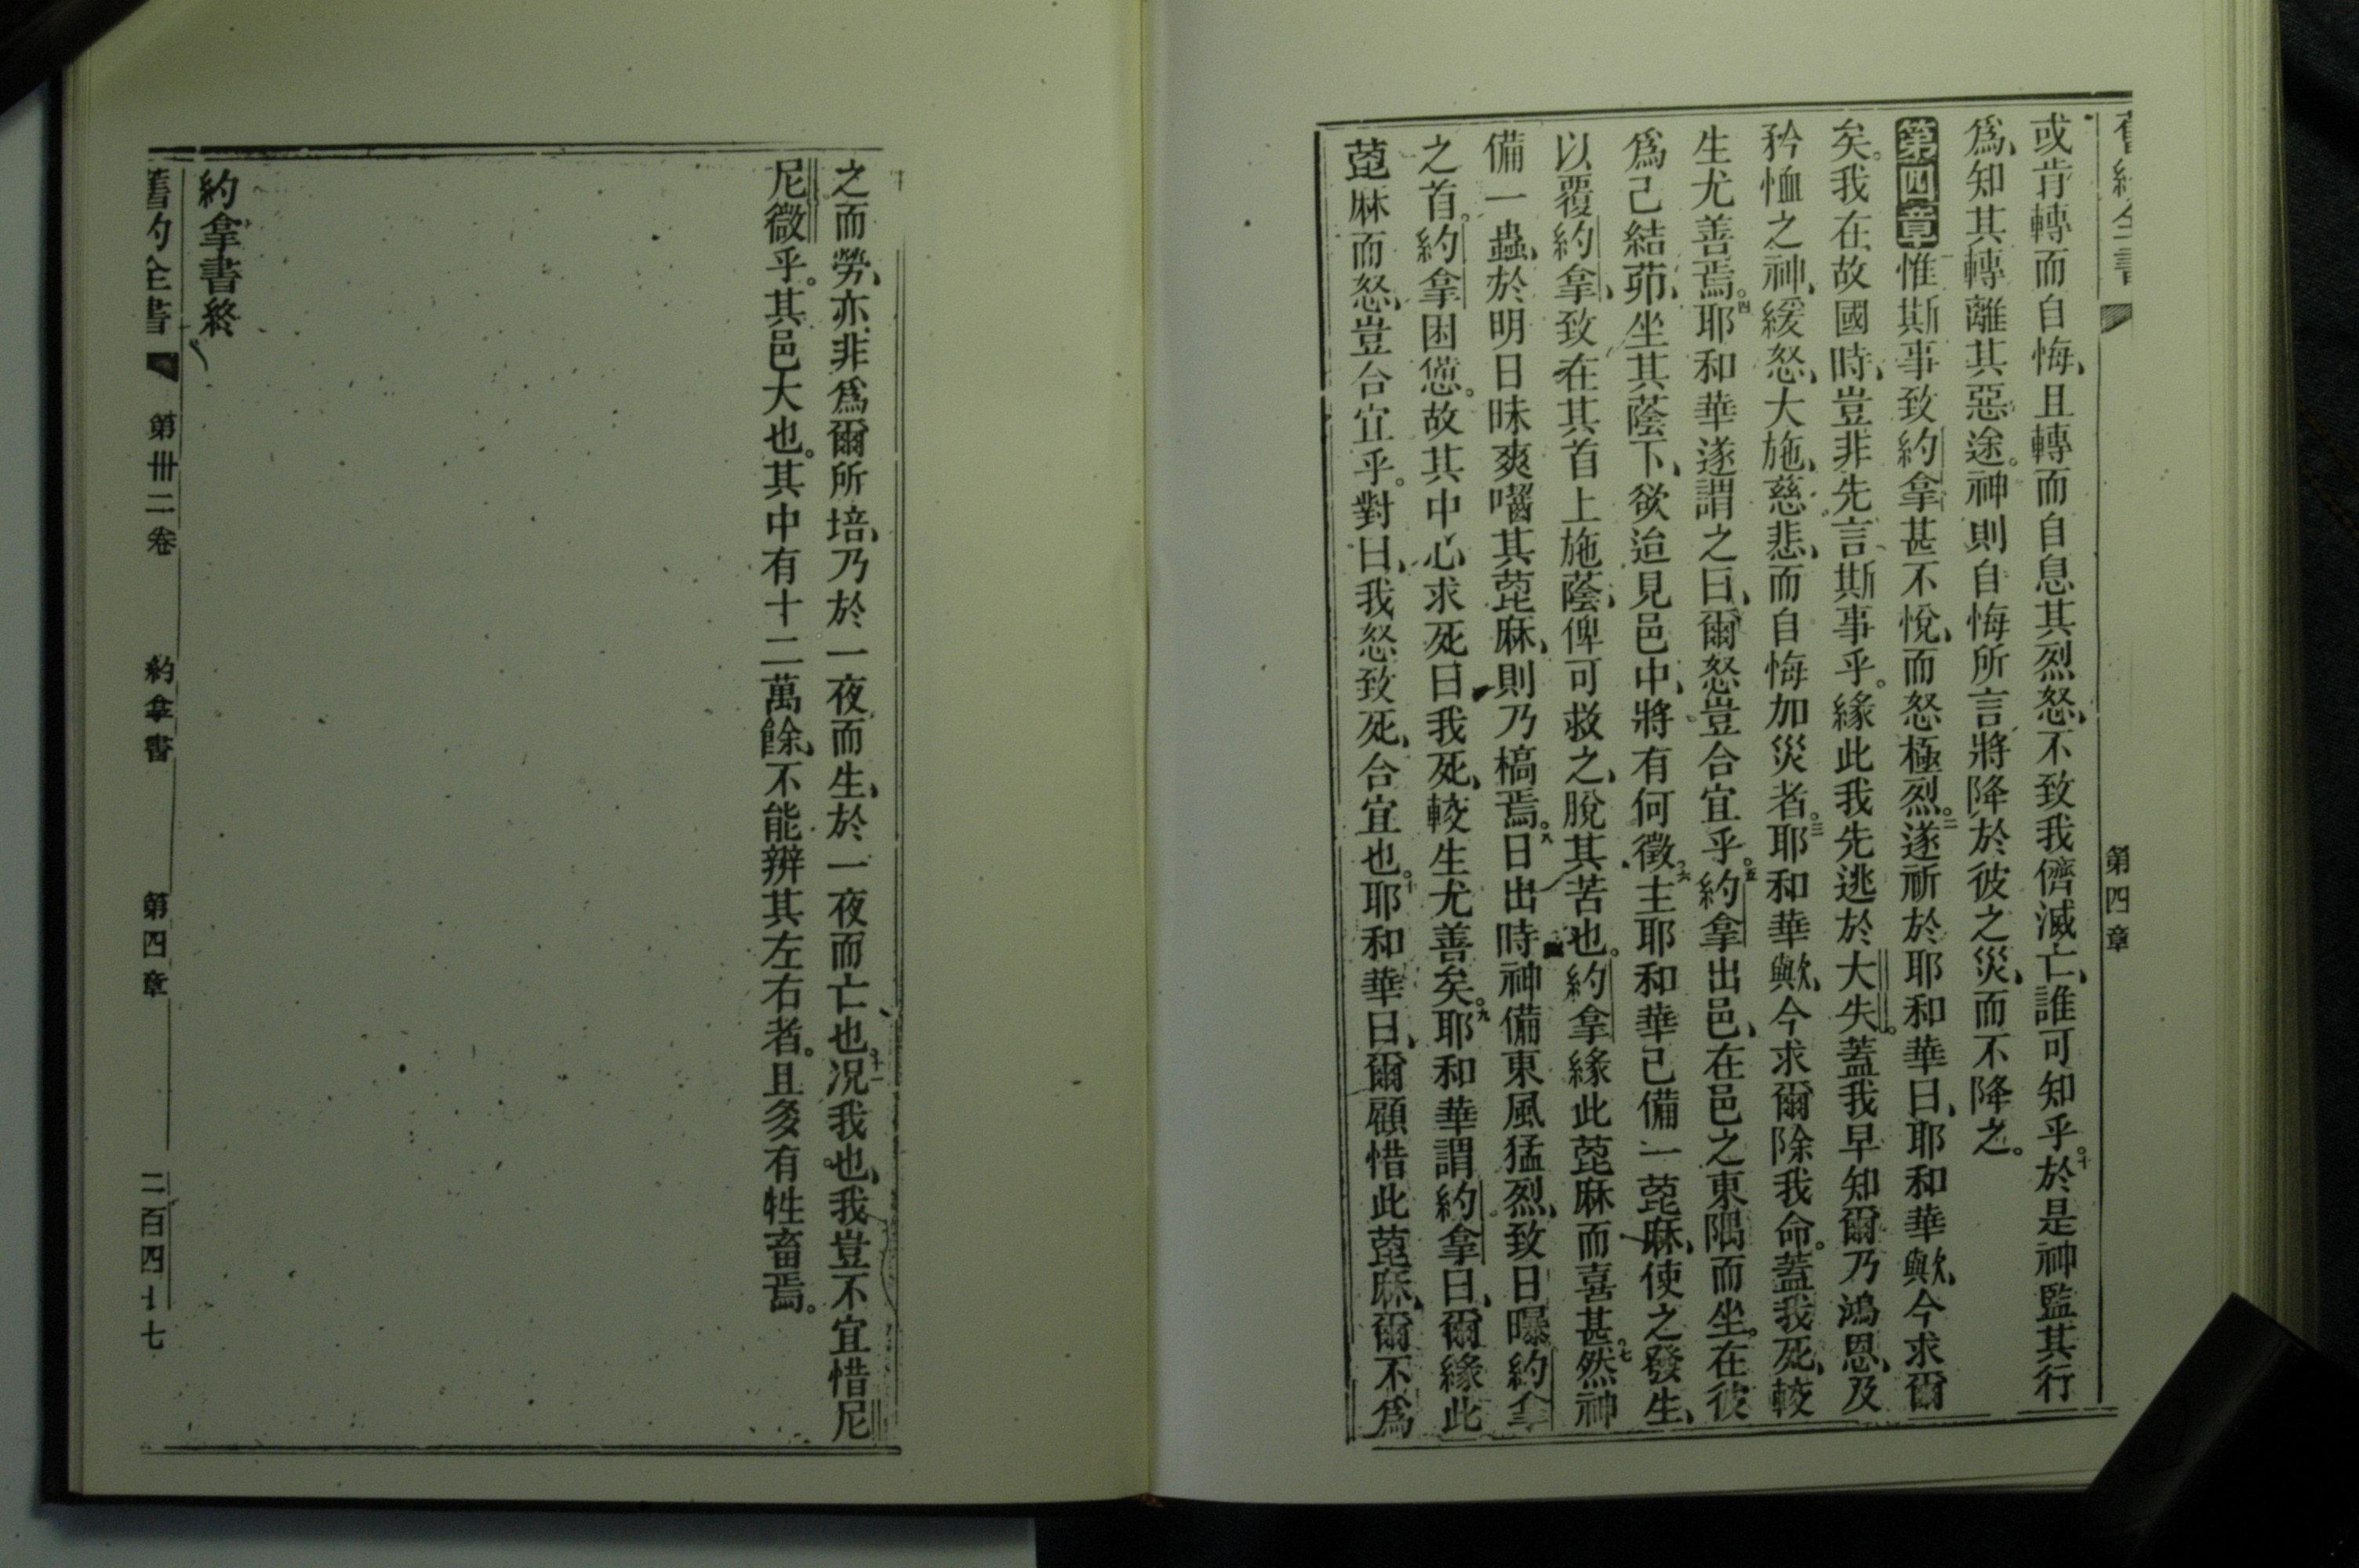 舊約全書 第四章
或肯轉而自悔、且轉而自息其烈怒、不致我儕滅亡、誰可知乎。十於是神監其行
爲、知其轉離其惡途。神則自悔所言將降於彼之災、而不降之。
第四章惟斯事致約拿甚不悅、而怒極烈。二遂祈於耶和華曰、耶和華歟、今求爾
矣。我在故國時、豈非先言斯事乎。緣此我先逃於大失。蓋我早知爾乃鴻恩、及
矜恤之神、緩怒、大施慈悲、而自悔加災者。三耶和華歟、今求爾除我命。蓋我死、較
生尤善焉。四耶和華遂謂之曰、爾怒豈合宜乎。五約拿出邑、在邑之東隅而坐。在彼
爲己結茆、坐其蔭下、欲迨見邑中、將有何徵。六主耶和華已備一蓖麻、使之發生、
以覆約拿、致在其首上施蔭、俾可救之、脫其苦也。約拿緣此蓖麻而喜甚。七然神
備一蟲、於明日昧爽嚙其蓖麻、則乃槁焉。八日出時神備東風猛烈、致日曝約拿
之首。約拿困憊。故其中心求死曰我死、較生尤善矣。九耶和華謂約拿曰、爾緣此
蓖麻而怒、豈合宜乎。對曰、我怒致死、合宜也。十耶和華曰、爾顧惜此蓖麻、爾不爲
之而勞、亦非爲爾所培、乃於一夜而生、於一夜而亡也。十一况我也、我豈不宜惜尼
尼微乎。其邑大也。其中有十二萬餘、不能辨其左右者。且多有牲畜焉。
約拿書終
舊約全書 第卅二卷 約拿書 第四章 二百四十七